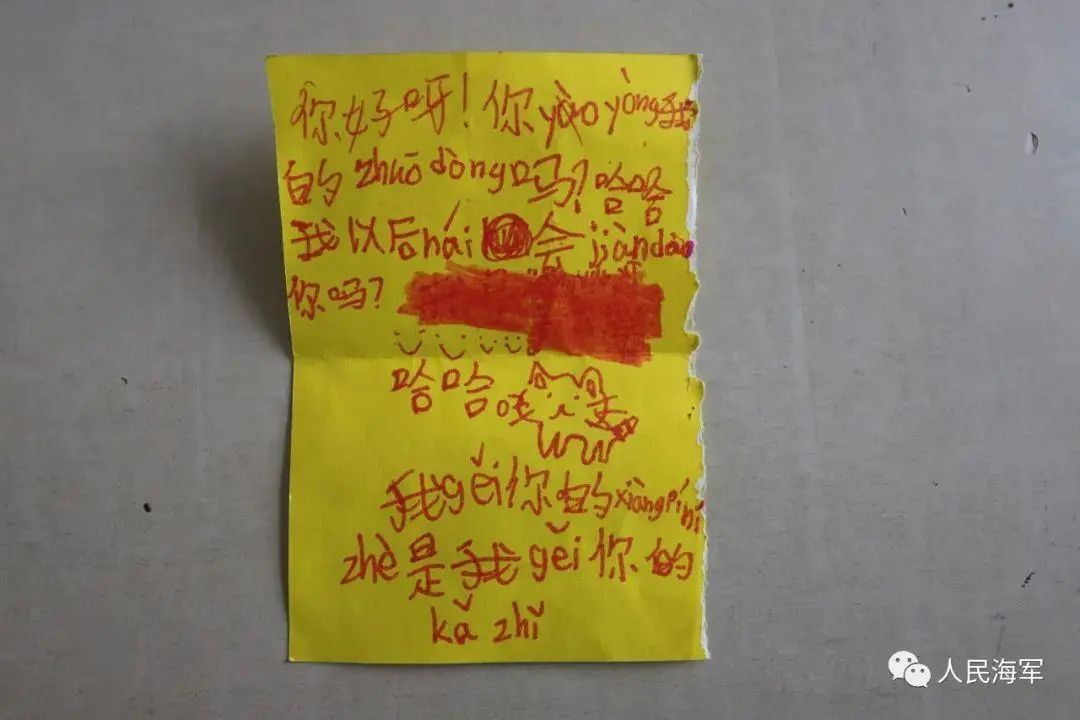 你好呀！你yàoyòng我
的zhuōdòng吗？哈哈
我以后hái会jiàndào
你吗？
哈哈
我gěi你的xiàngpíní
zhè是我gěi你的
kǎ zhǐ
人民海军